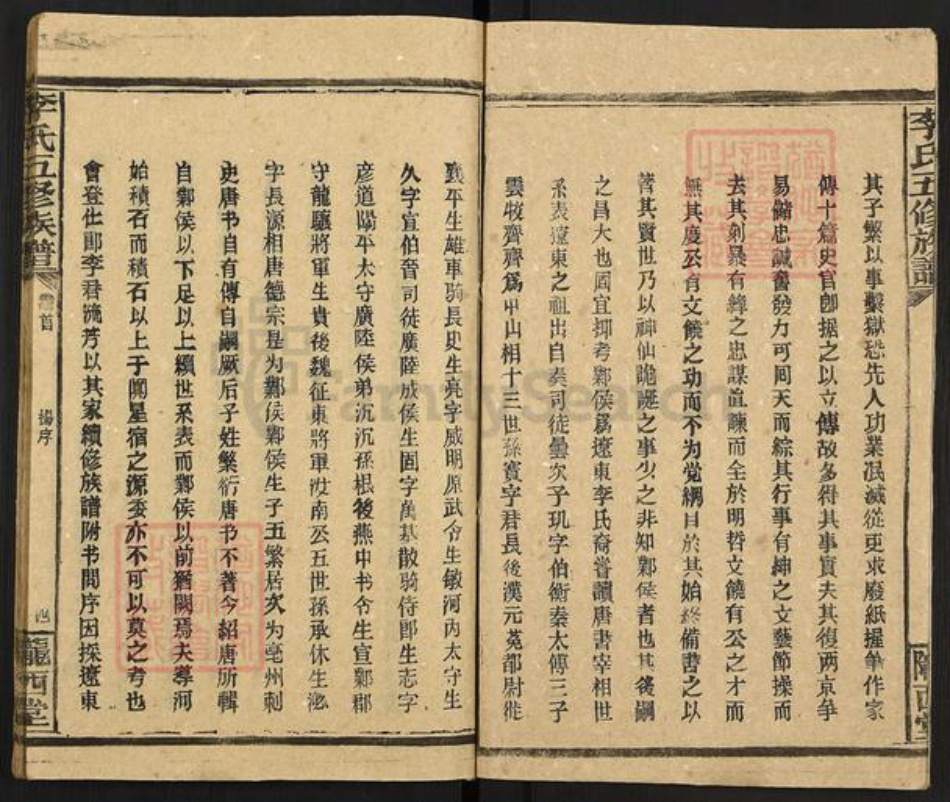 李氏五修族譜
隴西堂
其子繁以事繫獄恐先人功業泯滅從吏求廢紙握筆作家
傳十篇史官卽据之以立傳故多得其事實夫其復两京爭
易儲忠誠奮發力可囘天而綜其行事有紳之文藝節操而
去其刻暴有絳之忠謀直諫而全於明哲文饒有公之才而
無其度公有文饒之功而不为党綱目於其始終備書之以
著其賢世乃以神仙詭誕之事少之非知鄴侯者也其後嗣
之昌大也固宜抑考鄴侯爲遼東李氏裔嘗讀唐書宰相世
系表遼東之祖出自秦司徒曇次子玑字伯衡秦太傅三子
雲牧齊齊爲中山相十三世孫寳字君長後漢元菟都尉徙
襄平生雄車騎長史生亮字威明原武令生敏河內太守生
久字宣伯晉司徒廣陸成侯生固字萬基散騎侍郎生志字
彦道陽平太守廣陸侯弟沉沉孫根後燕中书令生宣鄴郡
守龍驤將軍生貴後魏征東將軍汝南公五世孫承休生泌
字長源相唐德宗是为鄴侯鄴侯生子五繁居次为亳州刺
史唐书自有傳自嗣厥后子姓繁衍唐书不著今紹唐所輯
自鄴侯以下足以上續世系表而鄴侯以前猶闕焉夫導河
始積石而積石以上于闐星宿之源委亦不可以莫之考也
會登仕郎李君流芳以其家續修族譜附书問序因採遼東
李氏五修族譜
卷首
楊序
四
隴西堂
FamilySearch